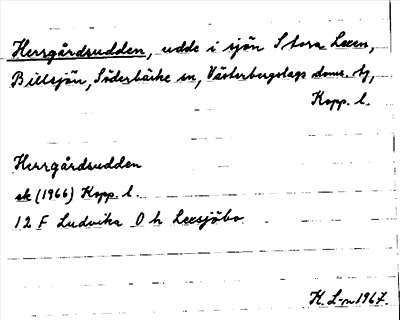 Herrgårdsudden, udde i sjön Stora Leen,
Billsjön, Söderbärke sn, Västerbergslags doms. tg,
Kopp. l.
Herrgårdsudden
ek (1966) Kopp. l.
12 F Ludvika O h Leesjöbo
K. L-n 1967.